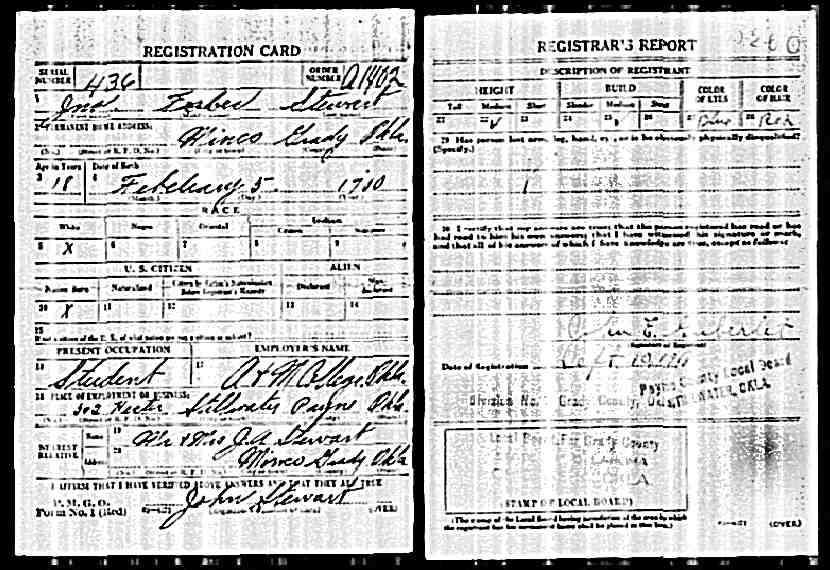 REGISTRATION CARD
SERIAL NUMBER 436
ORDER NUMBER A1402
1 Jno Forbes Stewart
2 PERMANENT HOME ADDRESS:
Minco Grady Okla.
(No.) (Street or R. F. D. No.) (City or town) (County) (State)
Age in Years Date of Birth
3 18 4 February 5 1900
(Month.) (Day.) (Year.)
RACE
White Negro Oriental Indian
Citizen
5 X 6 7 8 9
U. S. CITIZEN ALIEN
Native Born Naturalized Citizen by Father's Naturalization Before Registrant's Majority Declarant Non-declarant
10 X 11 12 13 14
15
If not a citizen of the U. S., of what nation are you a citizen or subject?
PRESENT OCCUPATION EMPLOYER'S NAME
16 Student 17 A & M College Okla.
18 PLACE OF EMPLOYMENT OR BUSINESS:
302 Stillwater Payne Okla.
NEAREST RELATIVE
Name 19 Mr & Mrs J.A. Stewart
Address 20 Minco Grady Okla
I AFFIRM THAT I HAVE VERIFIED ABOVE ANSWERS AND THAT THEY ARE TRUE
P. M. G. O.
Form No. 1 (Red) John Stewart
(OVER)
REGISTRAR'S REPORT
DESCRIPTION OF REGISTRANT
HEIGHT BUILD COLOR OF EYES COLOR OF HAIR
Tall Medium Short Slender Medium Stout
21 22 ✓ 23 24 25 26 27 Blue 28 Red
29 Has person lost arm, leg, hand, eye, or is he obviously physically disqualified?
(Specify.)
30 I certify that my answers are true; that the person registered has read or has
had read to him his own answers; that I have witnessed his signature or mark,
and that all of his answers of which I have knowledge are true, except as follows:
(Signature of Registrar)
Date of Registration Sept
Payne County Local Board
STILLWATER, OKLA.
Division No. Grady County,
Local Board For Grady County
(STAMP OF LOCAL BOARD)
(The stamp of the Local Board having jurisdiction of the area in which
the registrant has his permanent home shall be placed in this box.)
(OVER)